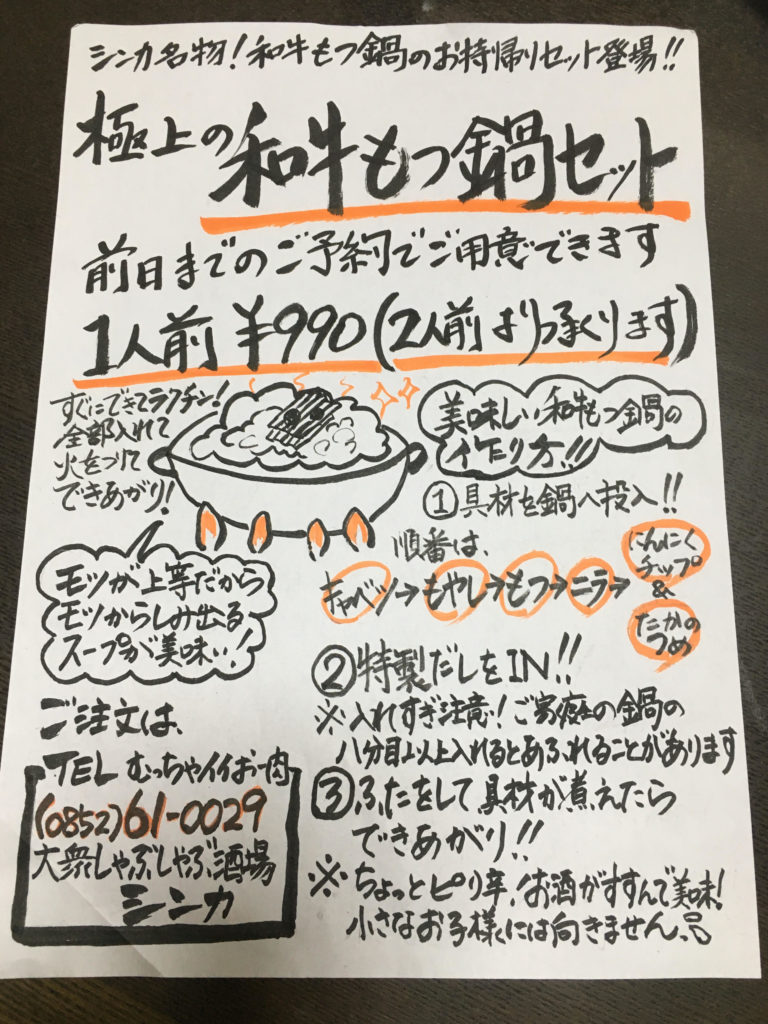 シンカ名物！和牛もつ鍋のお持帰りセット登場!!
極上の和牛もつ鍋セット
前日までのご予約でご用意できます
1人前¥990(2人前より承ります)
すぐにできてラクチン!
全部入れて
火をつけて
できあがり!
モツが上等だから
モツからしみ出る
スープが美味い!
美味しい和牛もつ鍋の
作り方!!!
①具材を鍋へ投入!!
順番は、
キャベツ→もやし→もつ→ニラ→
にんにく
チップ
&
たかの
つめ
②特製だしをIN!!
※入れすぎ注意!ご家庭の鍋の
八分目以上入れるとあふれることがあります
③ふたをして具材が煮えたら
できあがり!!
※ちょっとピリ辛、お酒がすすんで美味!
小さなお子様には向きません。
ご注文は、
TEL むっちゃイイお肉
(0852)61-0029
大衆しゃぶしゃぶ酒場
シンカ